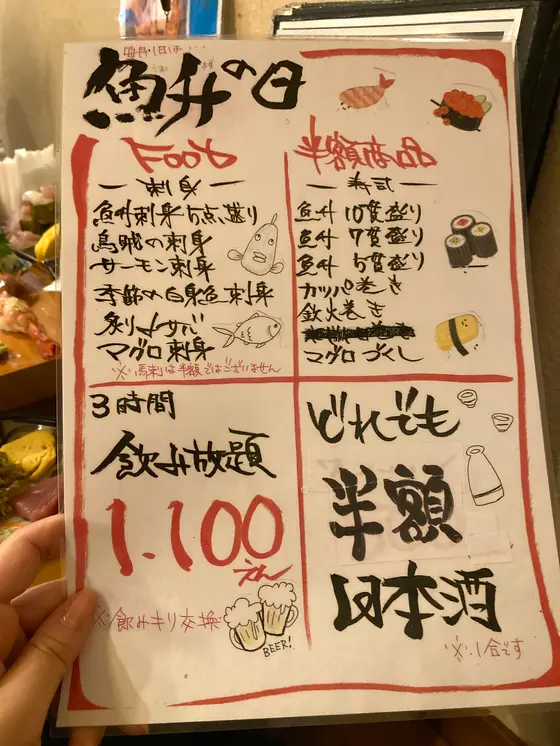 毎月・1日は・・・
魚升の日
うお 桝
Food
半額商品
刺身
魚升刺身5点盛り
烏賊の刺身
サーモン刺身
季節の白身魚刺身
炙り〆サバ
マグロ刺身
※馬刺は半額ではございません
寿司
魚升 10貫盛り
魚升 7貫盛り
魚升 5貫盛り
カッパ巻き
鉄火巻き
マグロづくし
3時間
飲み放題
1.100
えん
※飲みキリ交換
BEER!
どれでも
半額
日本酒
※1合です